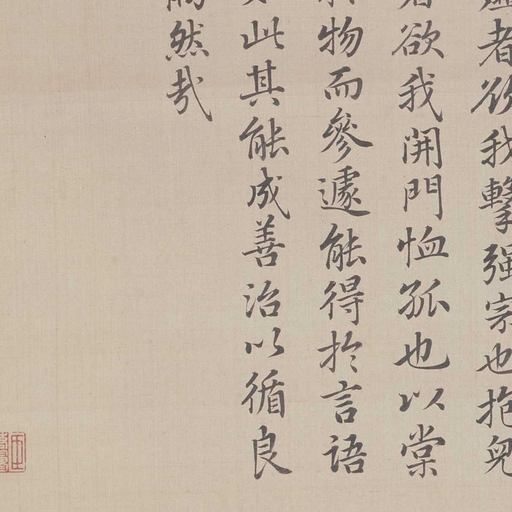 者欲我擊強宗也抱兒
欲我開門恤孤也以棠
物而參遽能得於言語
此其能成善治以循良
然哉